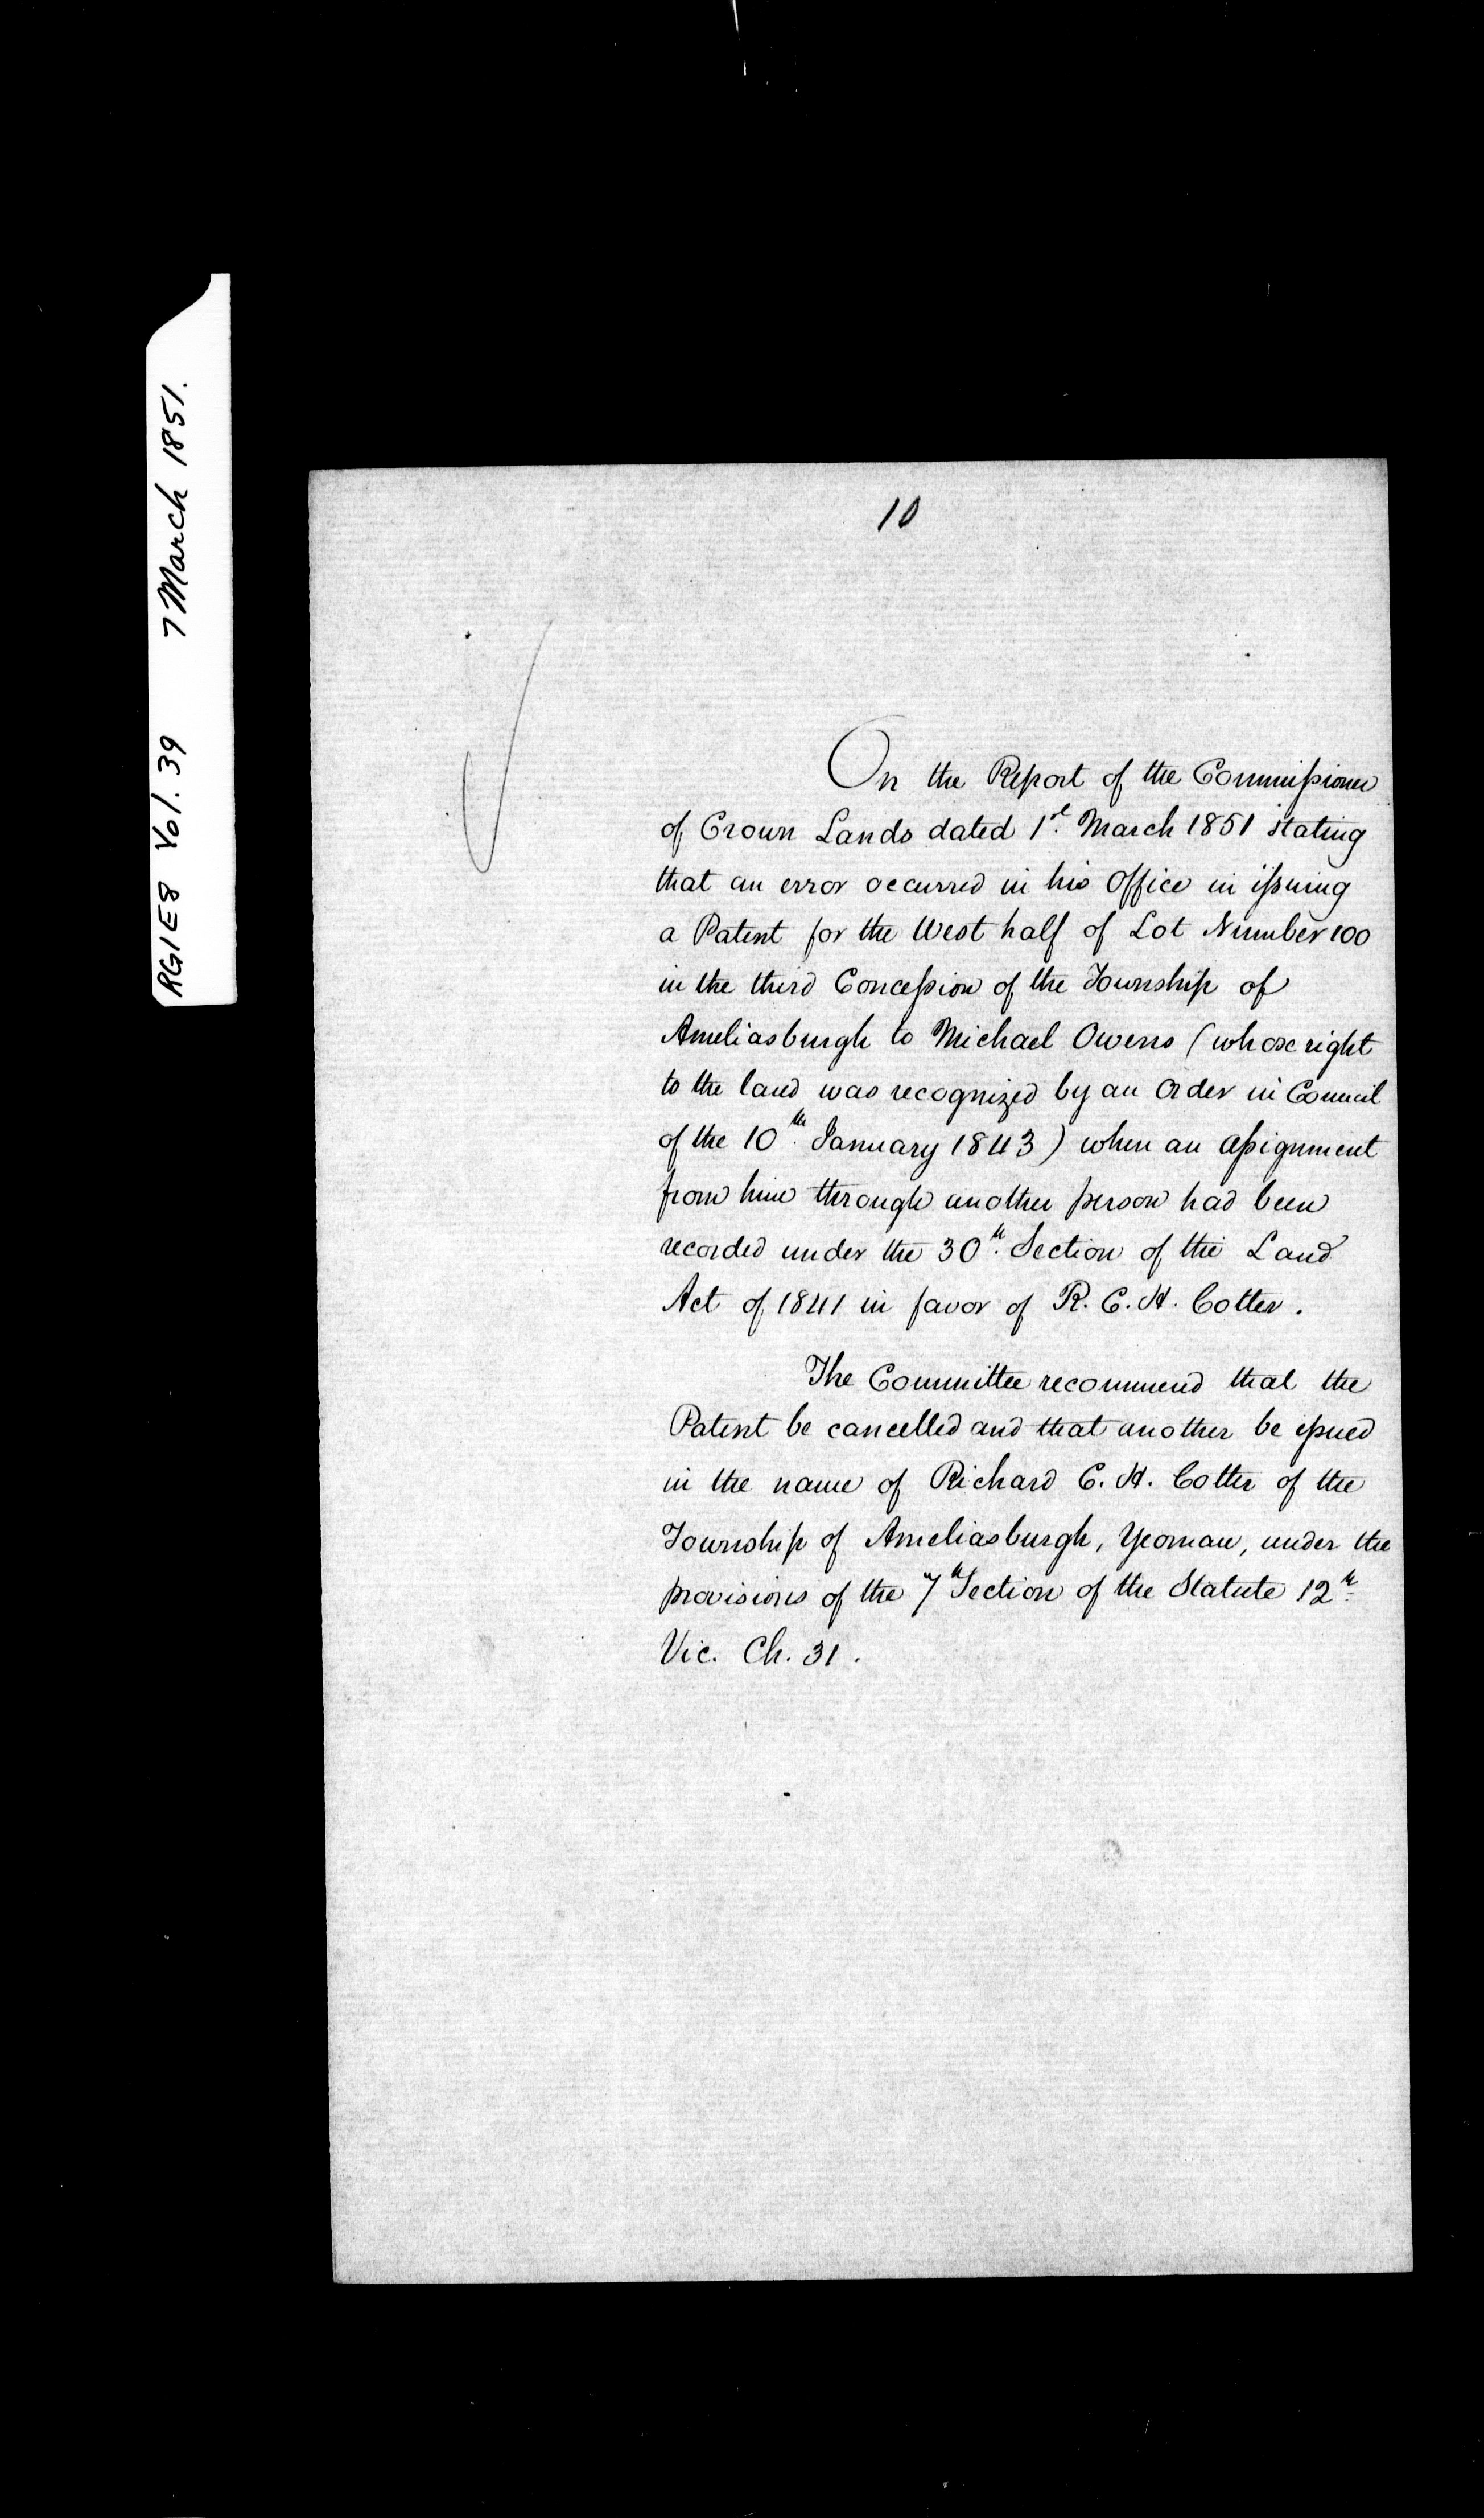 RG1E8 Vol. 39 7 March 1851.
10
On the Report of the Commissioner
of Crown Lands dated 1st. March 1851 stating
that an error occurred in his Office in issuing
a Patent for the West half of Lot Number 100
in the third Concession of the Township of
Ameliasburgh to Michael Owens (whose right
to the land was recognized by an Order in Council
of the 10th. January 1843) when an assignment
from him through another person had been
recorded under the 30th. Section of the Land
Act of 1841 in favor of R. C. H. Cotter.
The Committee recommend that the
Patent be cancelled and that another be issued
in the name of Richard C. H. Cotter of the
Township of Ameliasburgh, Yeoman, under the
provisions of the 7th Section of the Statute 12th.
Vic. Ch. 31.